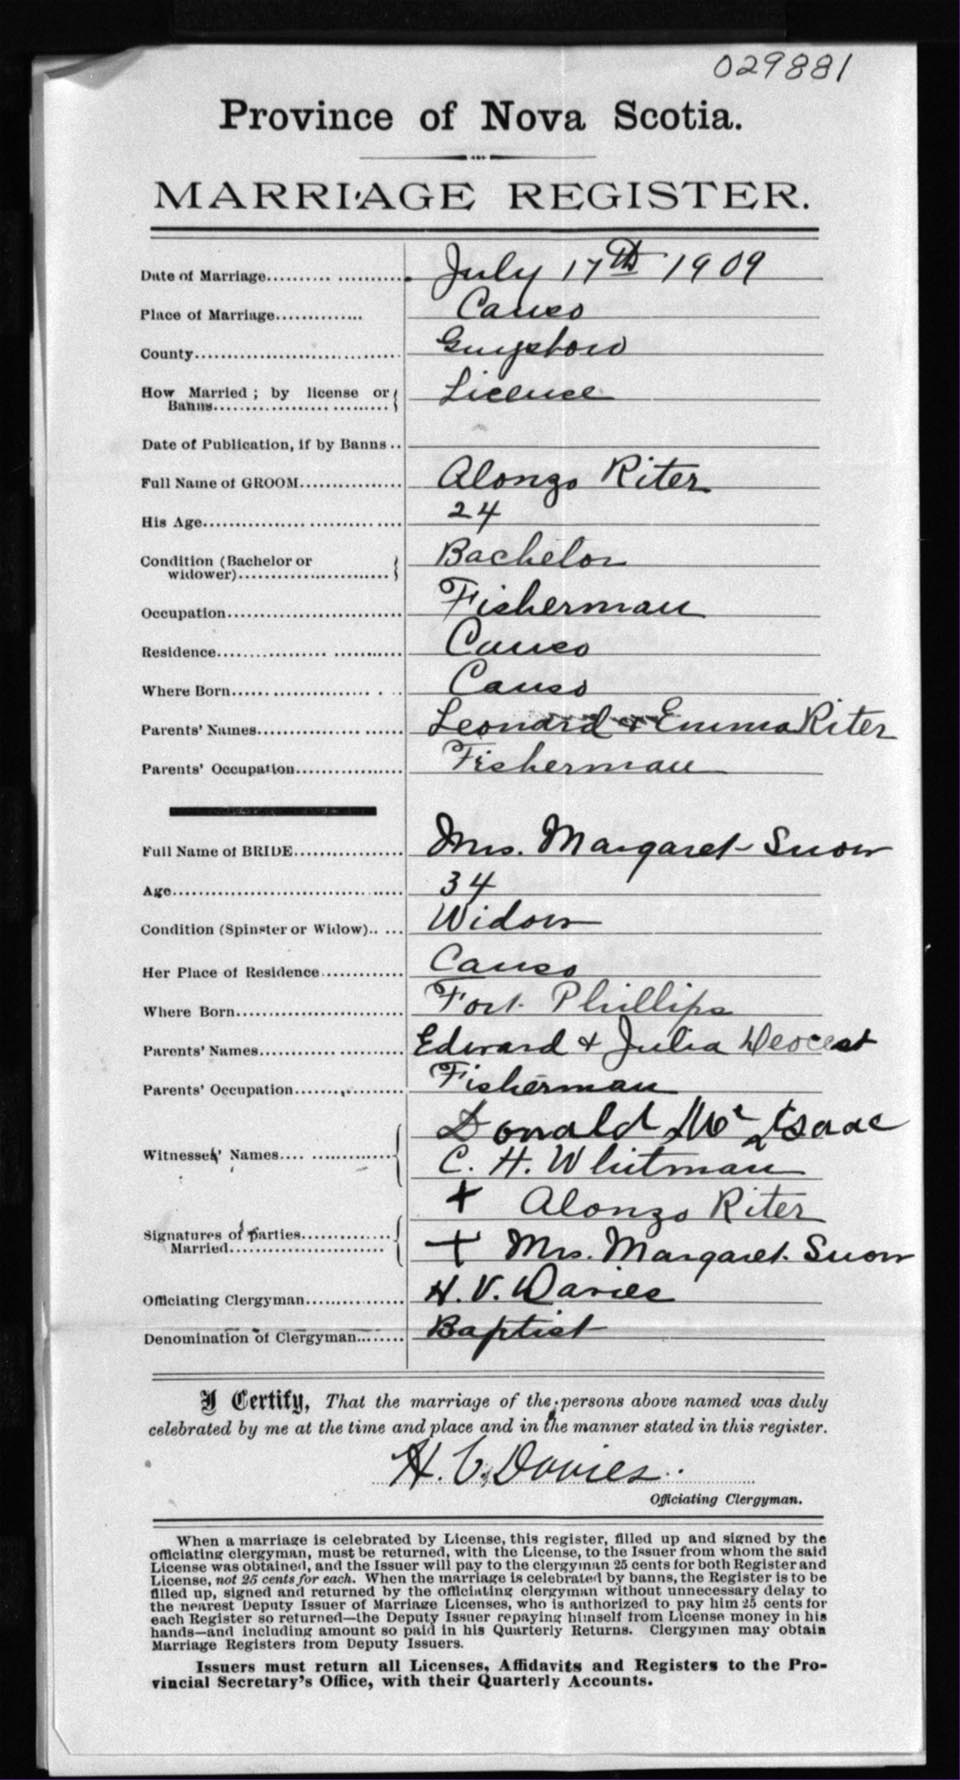 029881
Province of Nova Scotia.
MARRIAGE REGISTER.
Date of Marriage................... July 17th 1909
Place of Marriage............. Canso
County............................... Guysboro
How Married ; by license or
Banns............................ License
Date of Publication, if by Banns ..
Full Name of GROOM............... Alonzo Riter
His Age............................. 24
Condition (Bachelor or
widower)........................ Bachelor
Occupation.......................... Fisherman
Residence........................... Canso
Where Born...................... . . . Canso
Parents' Names..................... Leonard & Emma Riter
Parents' Occupation................ Fisherman
Full Name of BRIDE................ Mrs. Margaret Snow
Age.................................. 34
Condition (Spinster or Widow).. ... Widow
Her Place of Residence............ Canso
Where Born.......................... Port Phillips
Parents' Names..................... Edward & Julia
Parents' Occupation................ Fisherman
Witnesses' Names.... ............... Donald Mc Isaac
C. H. Whitman
Signatures of Parties............... + Alonzo Riter
Married.......................... + Mrs. Margaret Snow
Officiating Clergyman.............. H. V. Davies
Denomination of Clergyman....... Baptist
I Certify, That the marriage of the persons above named was duly
celebrated by me at the time and place and in the manner stated in this register.
H. V. Davies.
Officiating Clergyman.
When a marriage is celebrated by License, this register, filled up and signed by the
officiating clergyman, must be returned, with the License, to the Issuer from whom the said
License was obtained, and the Issuer will pay to the clergyman 25 cents for both Register and
License, not 25 cents for each. When the marriage is celebrated by banns, the Register is to be
filled up, signed and returned by the officiating clergyman without unnecessary delay to
the nearest Deputy Issuer of Marriage Licenses, who is authorized to pay him 25 cents for
each Register so returned—the Deputy Issuer repaying himself from License money in his
hands—and including amount so paid in his Quarterly Returns. Clergymen may obtain
Marriage Registers from Deputy Issuers.
Issuers must return all Licenses, Affidavits and Registers to the Pro-
vincial Secretary's Office, with their Quarterly Accounts.